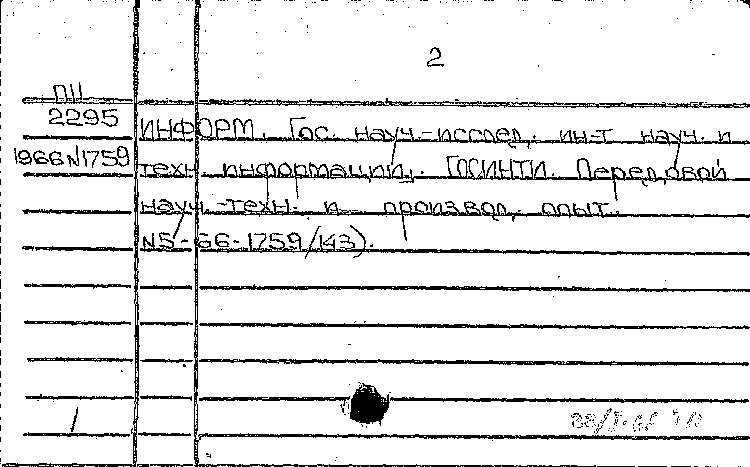 2
ПП
2295
1966N1759
ИНФОРМ. Гос. науч.-исслед. ин-т науч. и
техн. информации. ГОСИНТИ. Передовой
науч.-техн. и производ. опыт.
N5-66-1759/143).